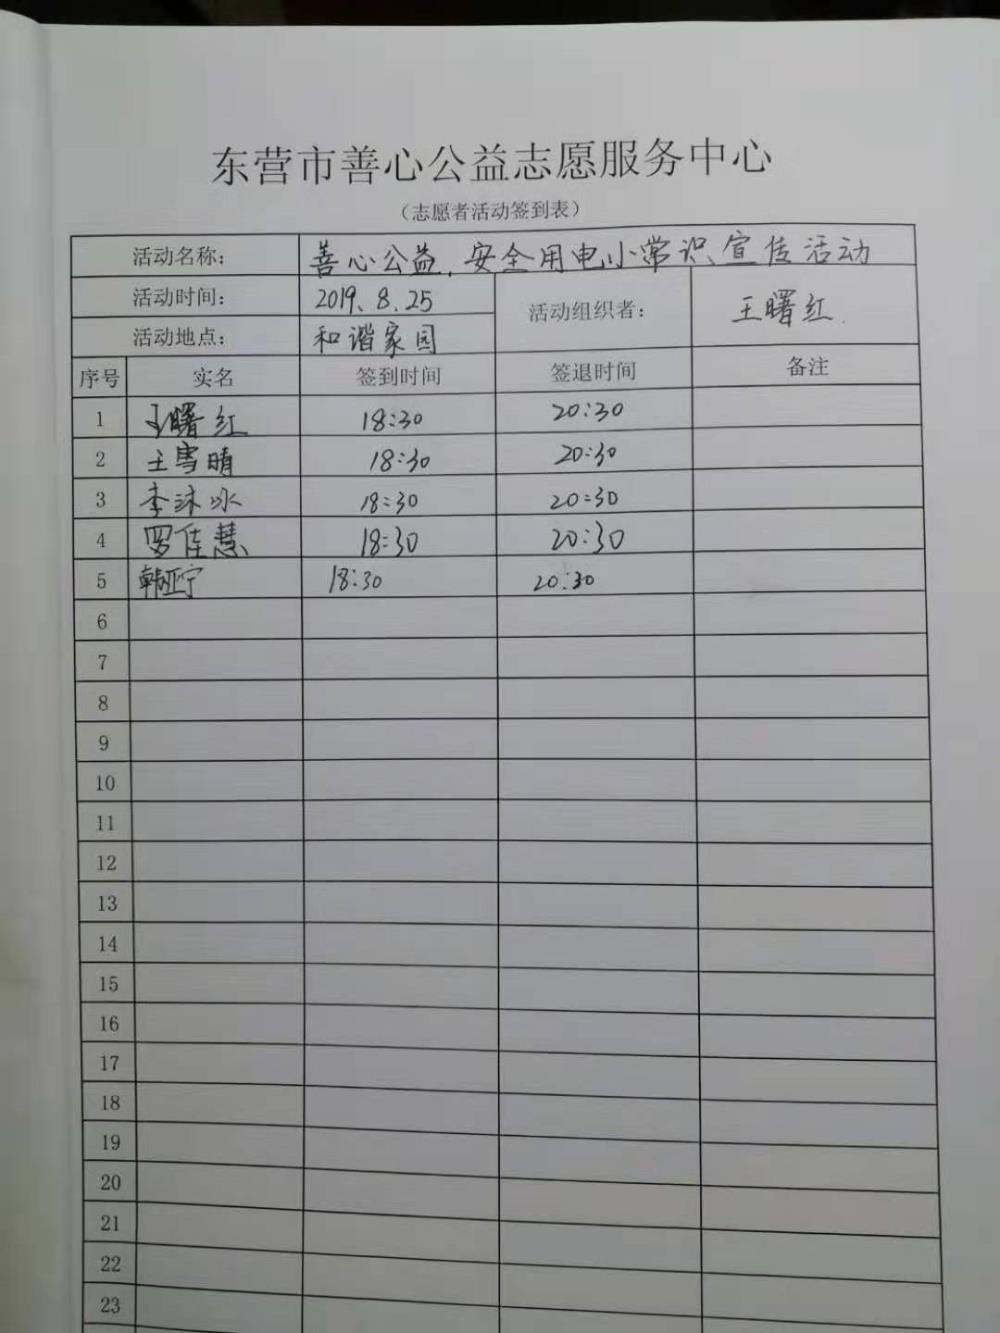 东营市善心公益志愿服务中心
（志愿者活动签到表）
活动名称： 善心公益，安全用电小常识宣传活动
活动时间： 2019.8.25 活动组织者： 王曙红
活动地点： 和谐家园
序号 实名 签到时间 签退时间 备注
1 王曙红 18:30 20:30
2 王雪晴 18:30 20:30
3 李沐冰 18:30 20:30
4 罗佳慧 18:30 20:30
5 韩亚宁 18:30 20:30
6
7
8
9
10
11
12
13
14
15
16
17
18
19
20
21
22
23